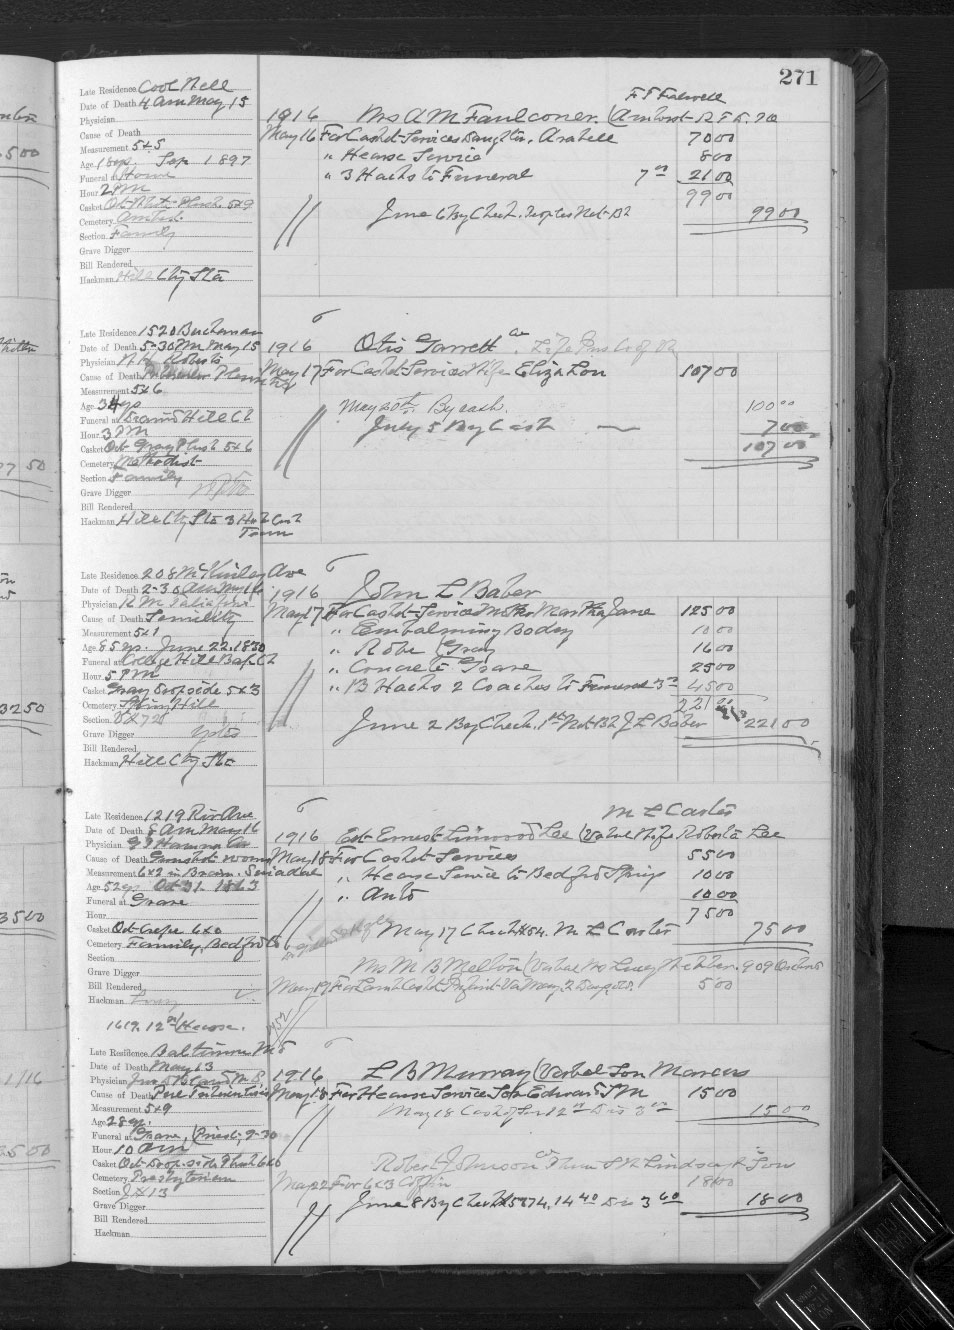 271
Late Residence Cool Well
Date of Death 4 Am May 15
Physician
Cause of Death
Measurement 5x5
Age 18 yrs. Sep 1897
Funeral at Home
Hour 2 PM
Casket Oct White Plush 5x9
Cemetery Amherst
Section Family
Grave Digger
Bill Rendered
Hackman Hill City Sta
F F Falwell
1916 Mrs A M Faulconer (Amherst R F D. 70
May 16 For Casket Services Daughter, Arabell 70 00
" Hearse Service 8 00
" 3 Hacks to Funeral 7 00 21 00
99 00
June 6 By Check. Peoples Nat. B2 99 00
Late Residence 1520 Buchanan
Date of Death 5-30 PM May 15
Physician
Cause of Death
Measurement 5x6
Age 34 yrs
Funeral at Hill Ch
Hour 3 PM
Casket Oct Gray Plush 5x6
Cemetery Methodist
Section Family
Grave Digger
Bill Rendered
Hackman Hill City Sta 3
1916 Otis Garrett
May 17 For Casket Services Wife Eliza Lou 107 00
May 20th By cash. 100 00
July 5 By Cash 7 00
107 00
Late Residence 208 McKinley Ave
Date of Death 2-30 Am May 16
Physician R M Taliaferro
Cause of Death Senility
Measurement 5x1
Age 85 yrs. June 22. 1830
Funeral at College Hill Bap. Ch
Hour 5 PM
Casket Gray Drop side 5x3
Cemetery Spring Hill
Section
Grave Digger
Bill Rendered
Hackman Hill City Sta
1916 John L Baber
May 17 For Casket-Service Mother Martha Jane 125 00
" Embalming Body 10 00
" Robe (Gray 16 00
" Concrete Grave 25 00
" 13 Hacks 2 Coaches to Funeral 3 00 45 00
221 00
June 2 By Check. 1st Nat B2 J L Baber 221 00
Late Residence 1219 Riv Ave
Date of Death 8 Am May 16
Physician
Cause of Death Gunshot wound
Measurement 6x2 in Brain. Suicidal
Age 52 yrs Oct 31 1863
Funeral at Grave
Hour
Casket Oct Crepe 6x0
Cemetery Family, Bedford Co
Section
Grave Digger
Bill Rendered
Hackman
M L Carter
1916 Est Ernest Linwood Lee (Verbal Wife Roberta Lee
May 18 For Casket Services 55 00
" Hearse Service to Bedford Springs 10 00
" Auto 10 00
75 00
May 17 Check #54. M L Carter 75 00
Mrs M B Melton (Verbal Mrs Lucy 909
May 19 For Lamb Casket 5 00
1617. 12 00 (Hearse.
Late Residence Baltimore Md
Date of Death May 13
Physician
Cause of Death
Measurement 5x9
Age 28 yrs.
Funeral at Grave, (Priest, 9-30
Hour 10 Am
Casket Oct Drop-side Plush 6x0
Cemetery Presbyterian
Section
Grave Digger
Bill Rendered
Hackman
1916 L B Murray (Verbal Son Marcus
May 18 For Hearse Service Son Edward T M 15 00
May 18 Cash 12 00 Dis 3 00 15 00
Robert Johnson
May 22 For 6x3 Coffin 18 00
June 8 By Check #5874, 14 40 Dis 3 60 18 00